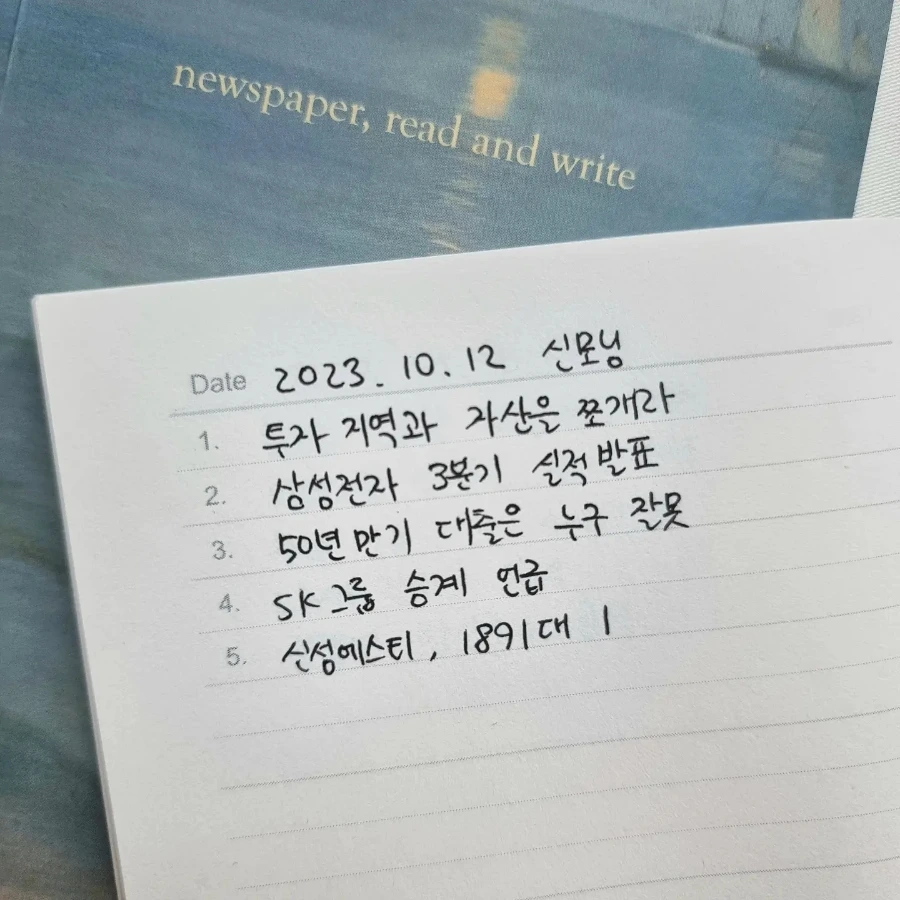 newspaper, read and write
Date 2023. 10. 12 신모닝
1. 투자 지역과 자산을 쪼개라
2. 삼성전자 3분기 실적 발표
3. 50년 만기 대출은 누구 잘못
4. SK그룹 승계 언급
5. 신성에스티, 1891대 1